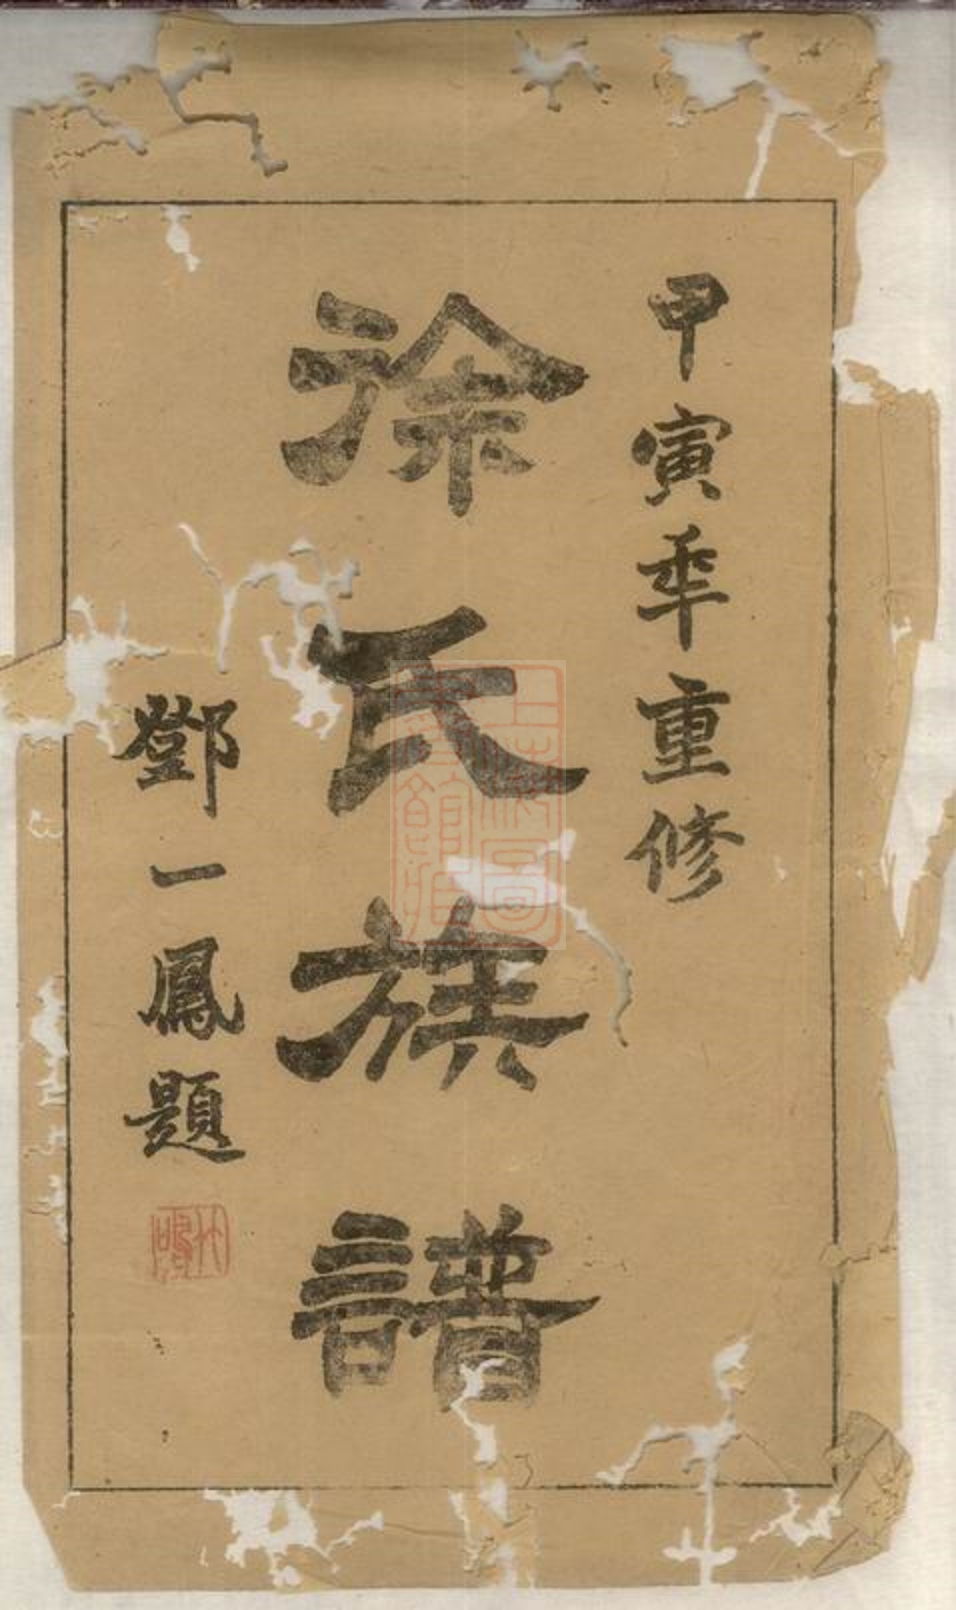 甲寅年重修
徐氏族譜
鄧一鳳題
上海圖書館藏